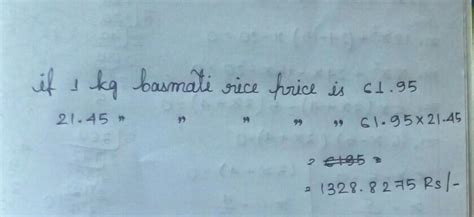 if 1 kg basmati rice price is 61.95
21.45 " " " " " 61.95×21.45
= 6195 "
= 1328.8275 Rs/-